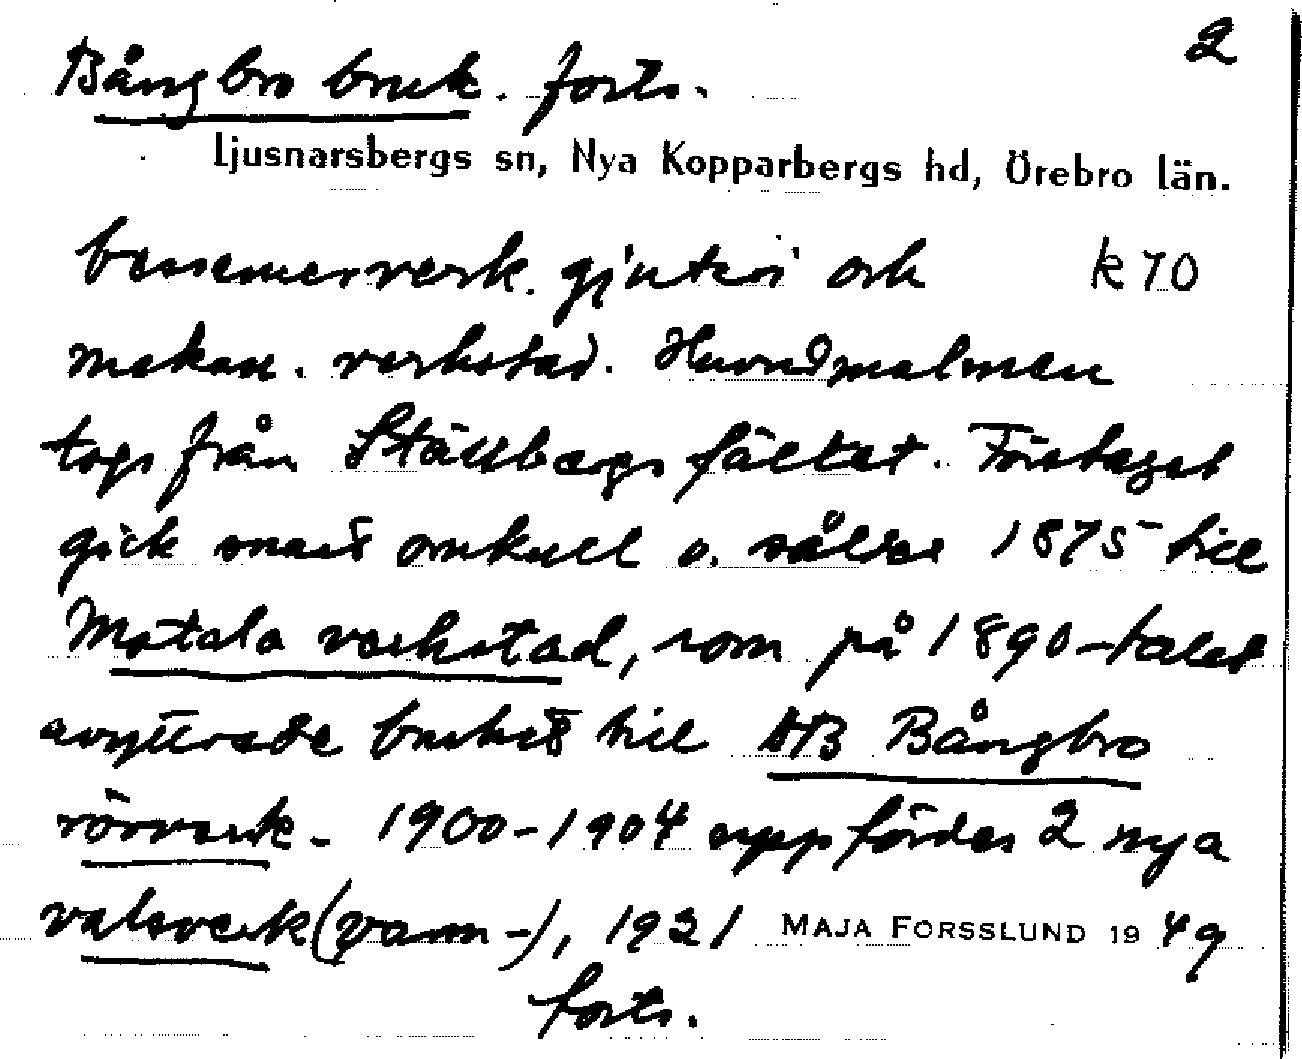 2
Bångbro bruk. forts.
Ljusnarsbergs sn, Nya Kopparbergs hd, Örebro län.
bessemerverk. gjuteri och k 70
mekan. verkstad. Huvudmalmen
togs från Ställbergsfältet. Företaget
gick snart omkull o. såldes 1875 till
Motala verkstad, som på 1890-talet
avyttrade bruket till AB Bångbro
rörverk. 1900-1904 uppfördes 2 nya
valsverk (varm-), 1921 MAJA FORSSLUND 19 49
forts.